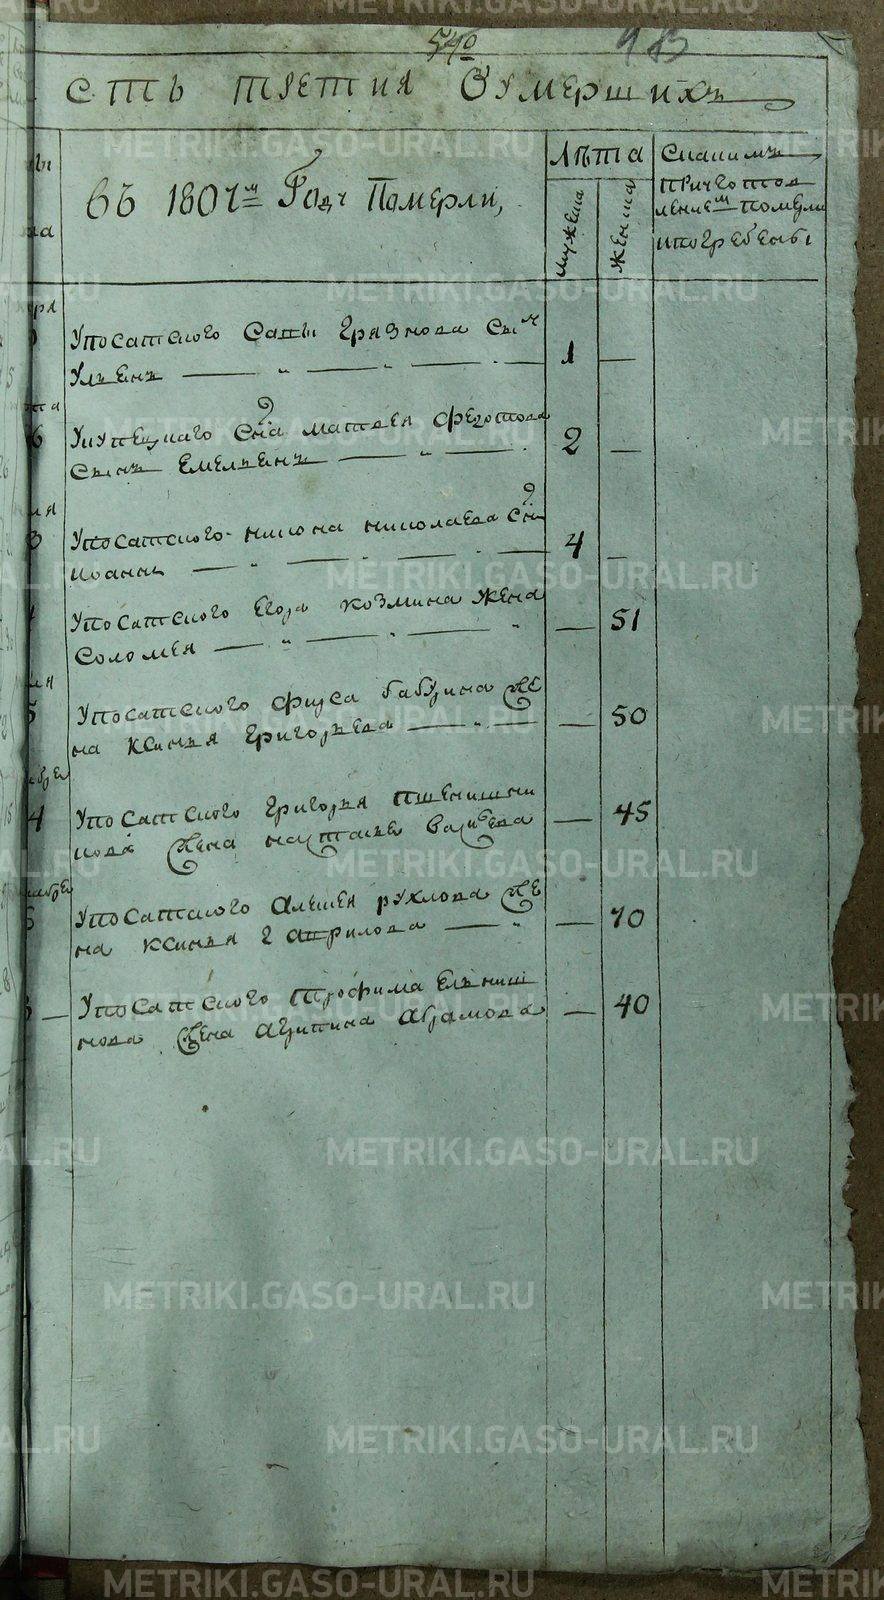 540
983
сть третия Оумершихъ
въ 1804м Году Померли,
лѣта
мужеска
женска
Скакимъ
причетом
померли
ипогребены
Упосатского Савы Грязнова сы
Ульянъ
6
Укупецкаго сна матвея федотова
Сынъ Емельянъ
Упосатского никона николаева сн
иоаннъ
Упосатского Егора козмина жена
Соломея
Упосатского фирса бабурина же
на ксинья григорьева
4
Упосатского григорья пшенишни
кова жена настасья
Упосатского алексея рухлова же
на ксинья гаврилова
Упосатского трофима ельниш
нова жена агрипина абрамова
1
2
4
51
50
45
70
40
METRIKI.GASO-URAL.RU